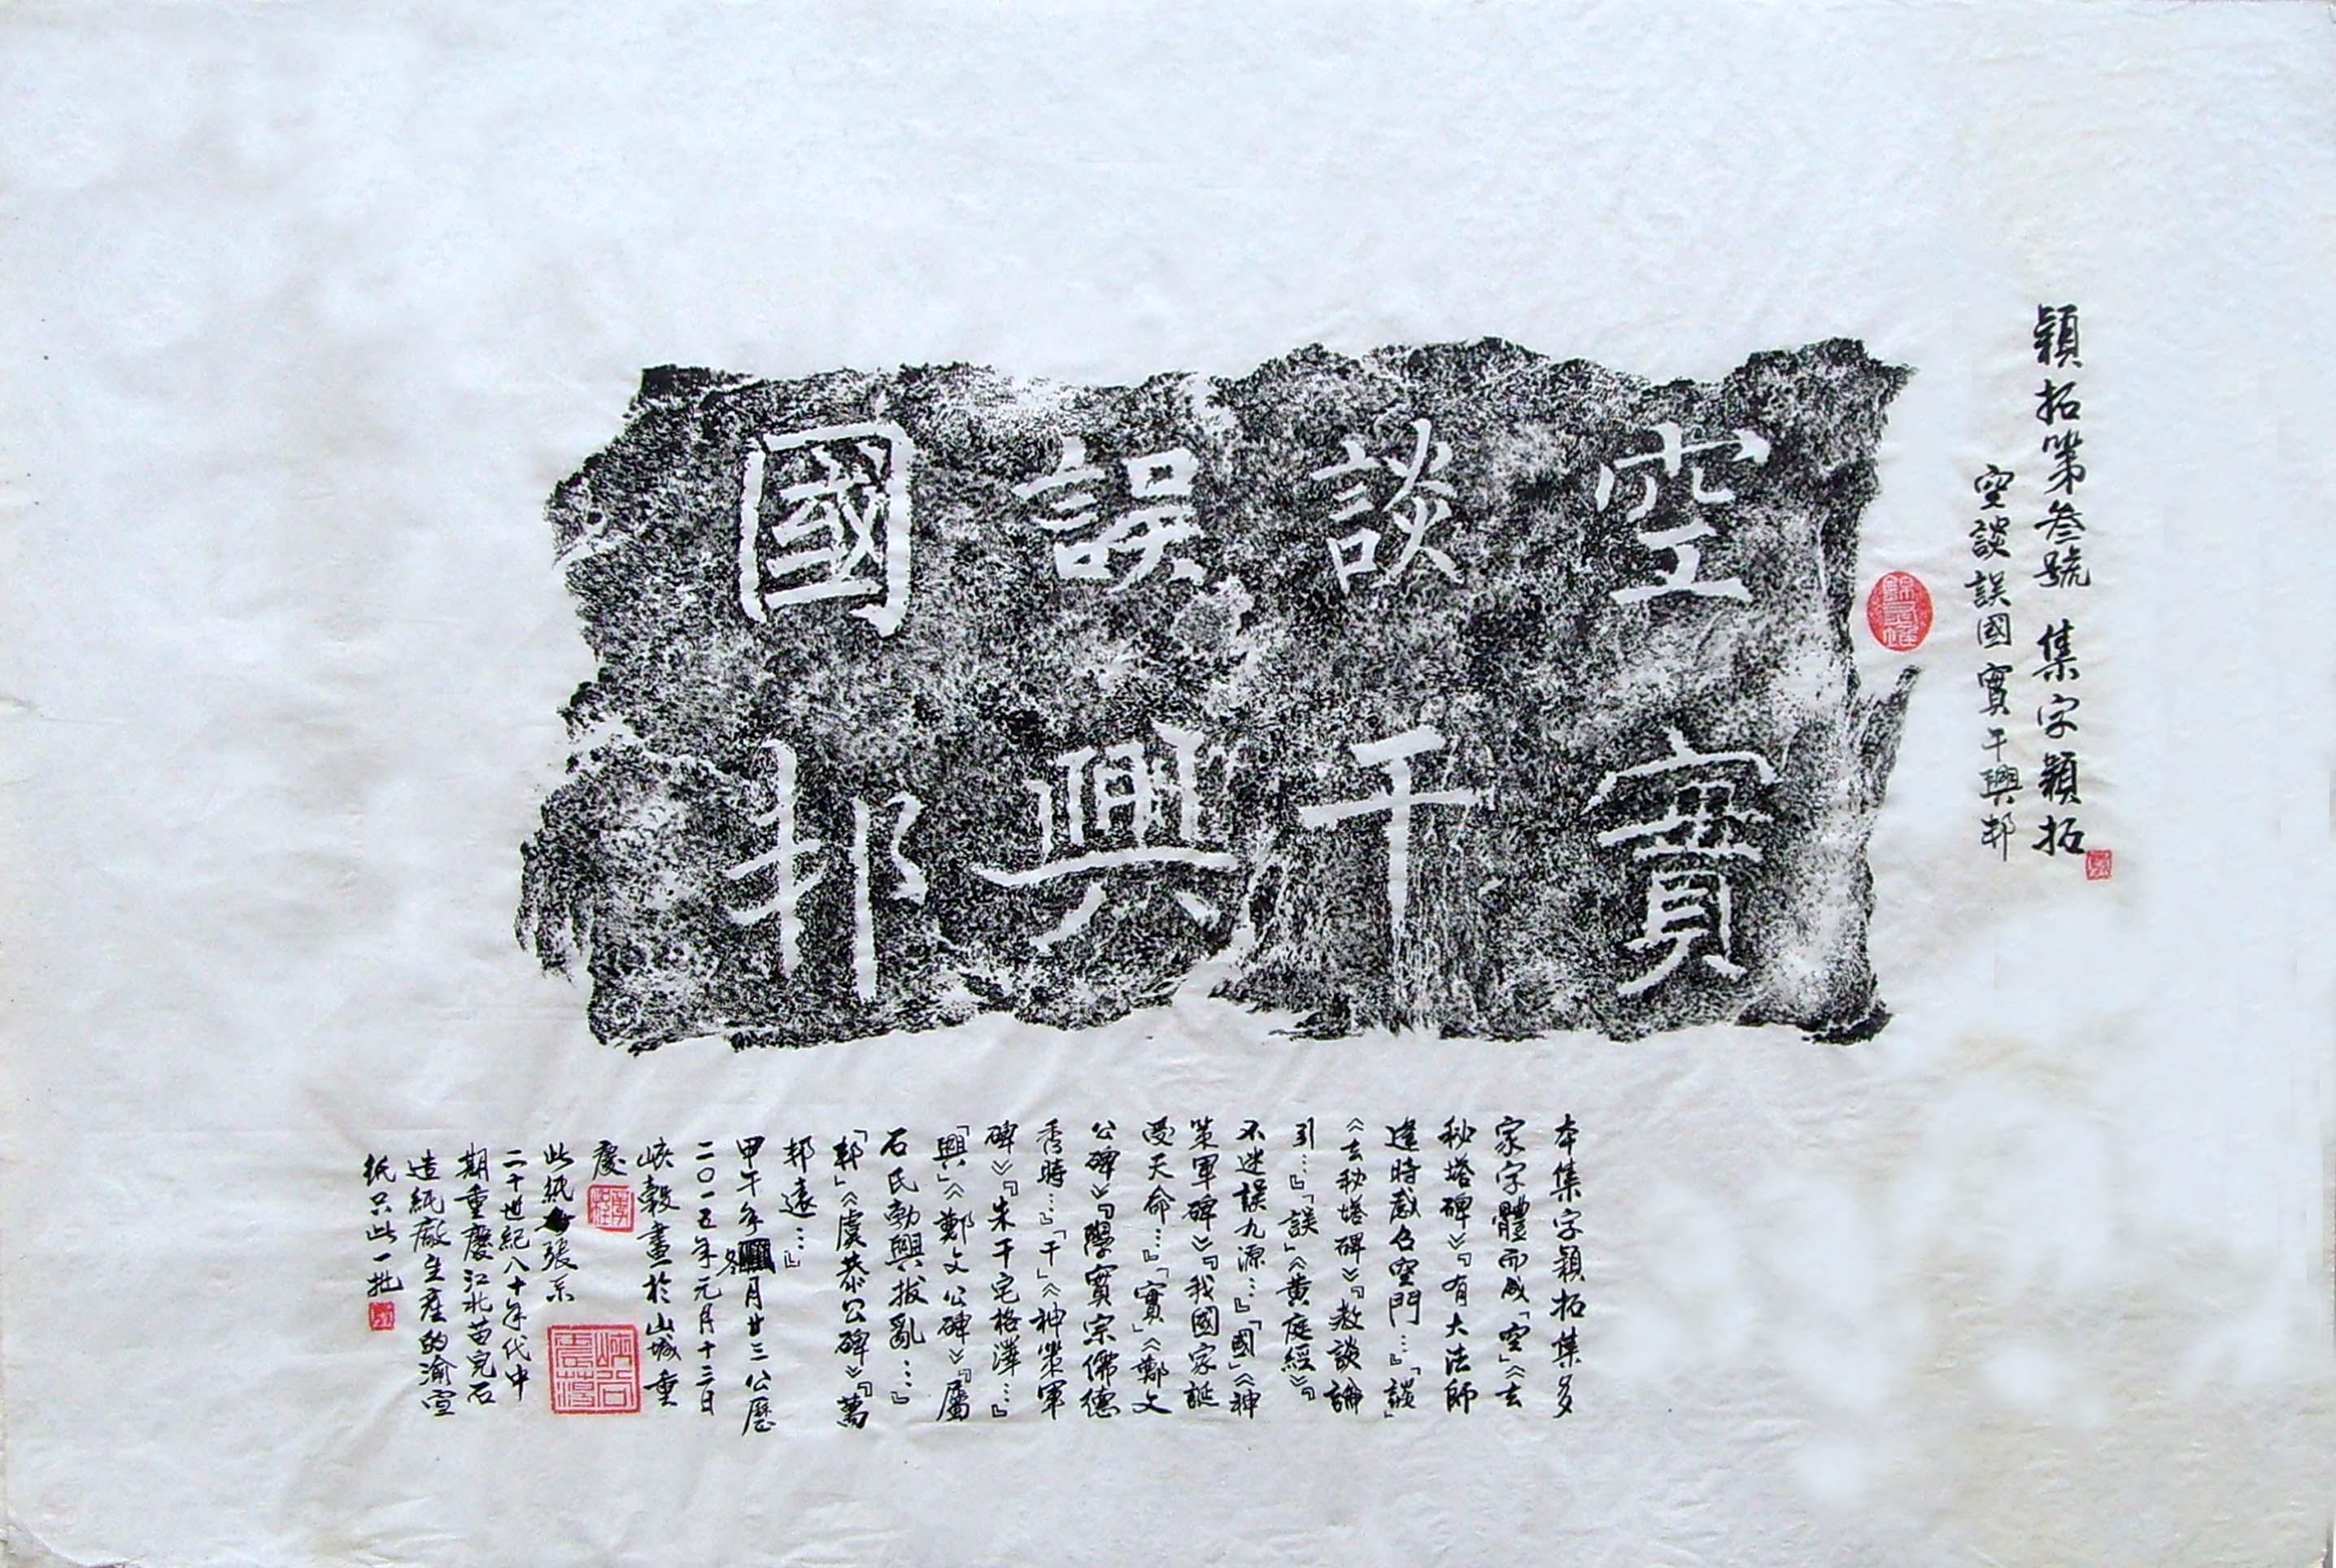 穎拓第叄號 集字穎拓
空談誤國實干興邦
空談誤國
實干興邦
本集字穎拓集多
家字體而成「空」《玄
秘塔碑》『有大法師
逢時感召空門…』「談」
《玄秘塔碑》『教談論
引…』「誤」《黄庭經》『
不迷誤九源…』「國」《神
策軍碑》『我國家誕
受天命…』「實」《鄭文
公碑》『學實宗儒德
秀時…』「干」《神策軍
碑》『朱干宅格澤…』
「興」《鄭文公碑》『屬
石氏勃興拔亂…』
「邦」《虞恭公碑》『萬
邦遠…』
甲午年冬月廿三公歷
二〇一五年元月十三日
峽穀畫於山城重
慶
此紙張系
二十世紀八十年代中
期重慶江北苗兒石
造紙廠生産的渝宣
紙只此一批